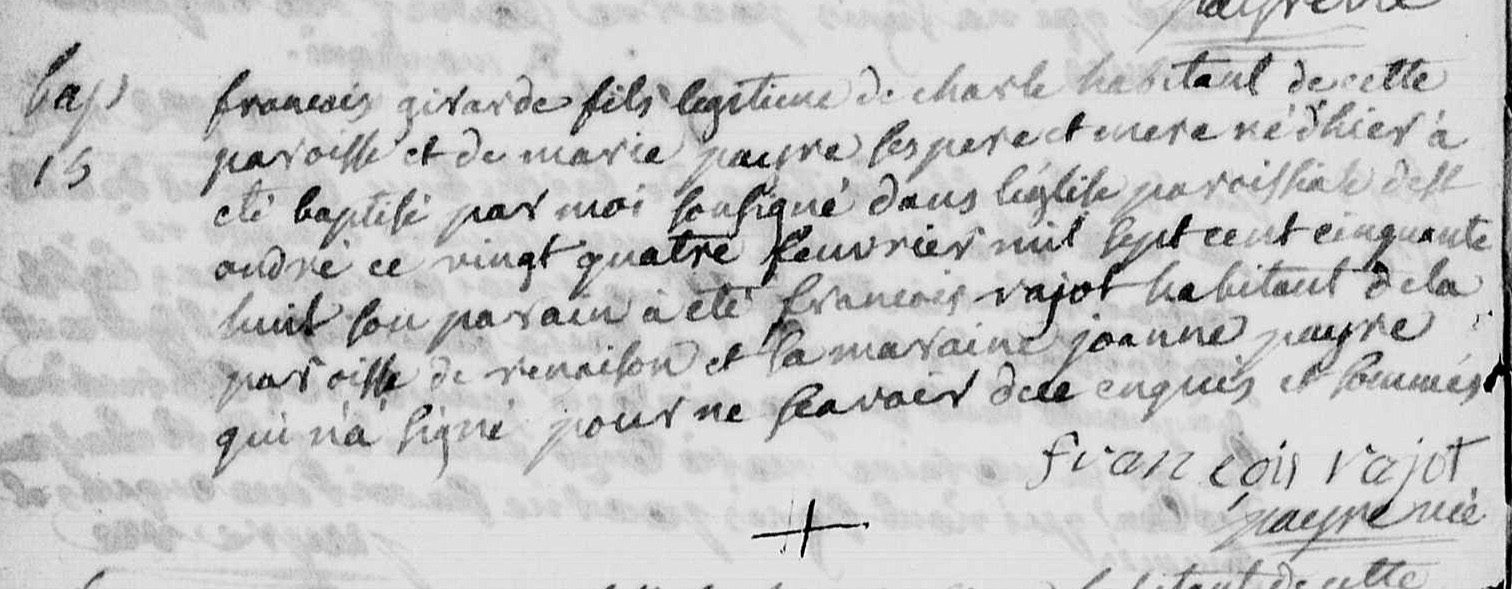 bap
15
francois girarde fils legitime de charle habitant de cette
paroisse et de marie payre ses pere et mere né dhier à
eté baptisé par moi sousigné dans léglise paroissiale dest
andré ce vingt quatre feuvrier mil sept cent cinquante
huit son parain à eté francois rajot habitant dela
paroisse de renaison et sa maraine joanne payre
qui n'a signé pour ne scavoir dece enquis et sommés
francois rajot
payre vic